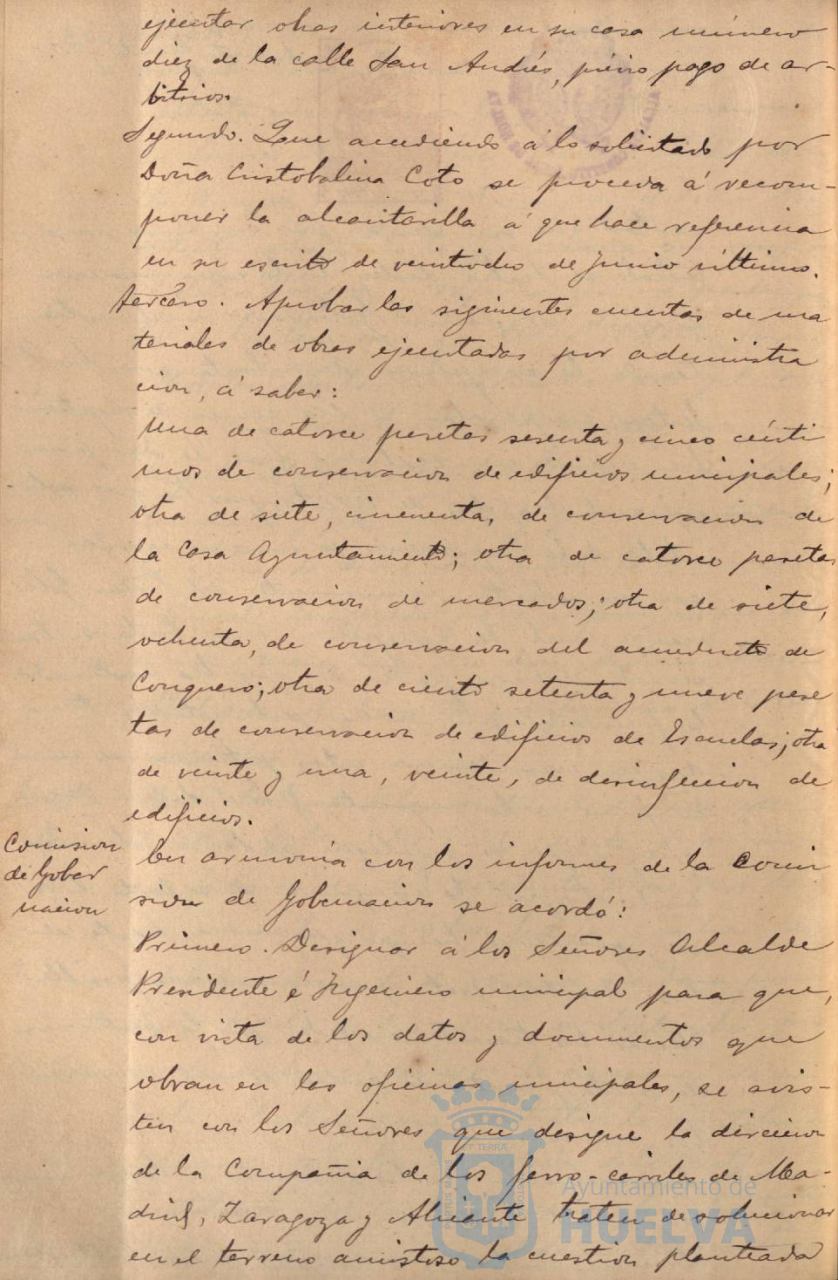 ejecutar obras interiores en su casa número
diez de la calle San Andrés, previo pago de ar-
bitrios.
Segundo. Que accediendo á lo solicitado por
Doña Cristobalina Coto se proceda á recom-
poner la alcantarilla á que hace referencia
en su escrito de veintiocho de junio último.
tercero. Aprobar las siguientes cuentas de ma
teriales de obras ejecutadas por administra
cion, á saber:
Una de catorce pesetas sesenta y cinco cénti
mos de conservacion de edificios municipales;
otra de siete, cincuenta, de conservacion de
la Casa Ayuntamiento; otra de catorce pesetas
de conservacion de mercados; otra de siete,
ochenta, de conservacion del acueducto de
Conquero; otra de ciento setenta y nueve pese
tas de conservacion de edificios de Escuelas; otra
de veinte y una, veinte, de desinfeccion de
edificios.
Comision
de Gober
nacion
En armonía con los informes de la Comi
sion de Gobernacion se acordó:
Primero. Designar á los Señores Alcalde
Presidente é Ingeniero municipal para que,
con vista de los datos y documentos que
obran en las oficinas municipales, se avis-
ten con los Señores que designe la direccion
de la Compañia de los ferro-carriles de Ma-
drid, Zaragoza y Alicante traten de solucionar
en el terreno amistoso la cuestion planteada
Ayuntamiento de
HUELVA